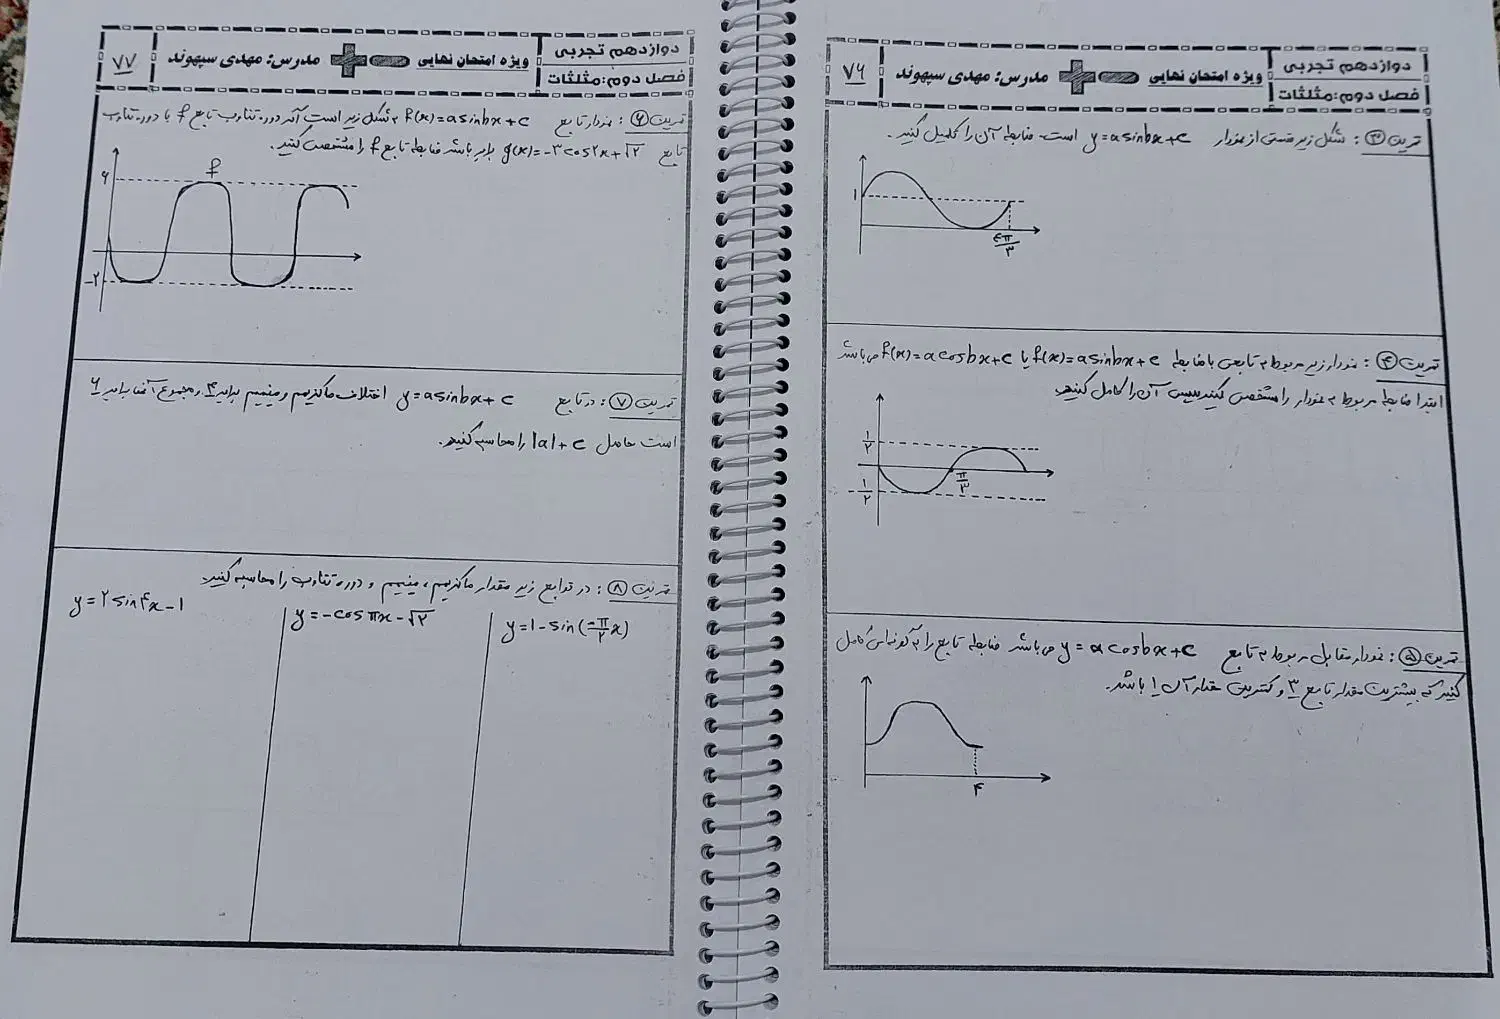 دوازدهم تجربی
فصل دوم: مثلثات
ویژه امتحان نهایی
مدرس: مهدی سپهوند
۷۶
تمرین ۳: شکل زیر قسمتی از نمودار y=a sin bx+c است. ضابطه آن را تکمیل کنید.
۱
۴π/۳
تمرین ۴: نمودار زیر مربوط به تابعی با ضابطه f(x)=a sin bx+c یا f(x)=a cos bx+c می‌باشد
ابتدا ضابطه مربوط به نمودار را مشخص کنید سپس آن را کامل کنید.
۱/۲
π/۳
-۱/۲
تمرین ۵: نمودار مقابل مربوط به تابع y=a cos bx+c می‌باشد ضابطه تابع را به گونه‌ای کامل
کنید که بیشترین مقدار تابع ۳ و کمترین مقدار آن ۱ باشد.
۴
دوازدهم تجربی
فصل دوم: مثلثات
ویژه امتحان نهایی
مدرس: مهدی سپهوند
۷۷
تمرین ۶: نمودار تابع f(x)=a sin bx+c به شکل زیر است اگر دوره تناوب تابع f با دوره تناوب
تابع g(x)=-۳cos۲x+√۲ برابر باشد ضابطه تابع f را مشخص کنید.
f
۶
-۲
تمرین ۷: در تابع y=a sin bx+c اختلاف ماکزیمم و مینیمم برابر ۴ و مجموع آنها برابر ۶
است حاصل |a|+c را محاسبه کنید.
تمرین ۸: در توابع زیر مقدار ماکزیمم، مینیمم و دوره تناوب را محاسبه کنید.
y=1-sin(-π/۲ x)
y=-cos πx-√۲
y=۲sin۴x-1